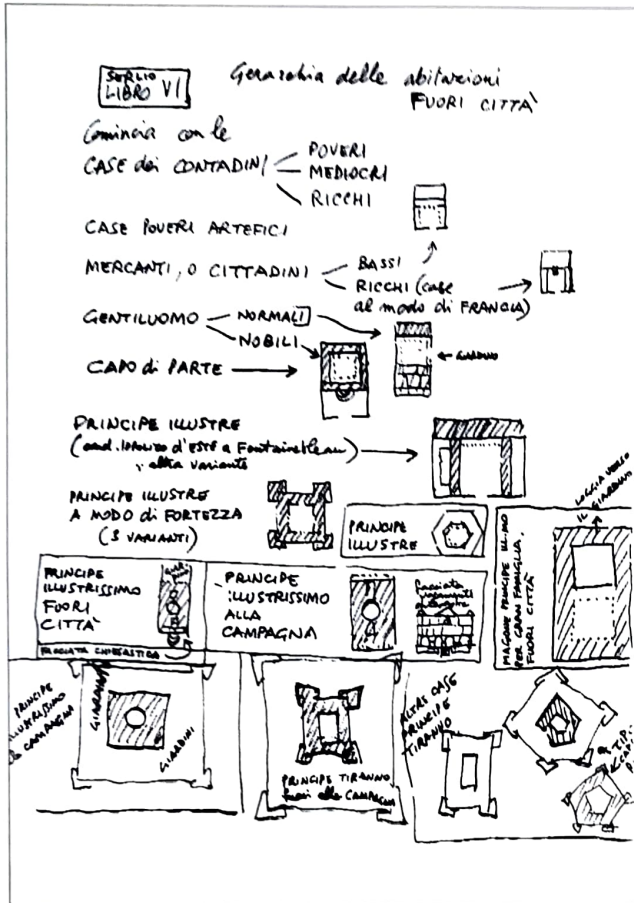 SERLIO
LIBRO VI
Gerarchia delle abitazioni
FUORI CITTÀ
Comincia con le
CASE dei CONTADINI
POVERI
MEDIOCRI
RICCHI
CASE POVERI ARTEFICI
MERCANTI, O CITTADINI
BASSI
RICCHI (case
al modo di FRANCIA)
GENTILUOMO
NORMALI
NOBILI
GIARDINO
CAPO di PARTE
PRINCIPE ILLUSTRE
(card. IPPOLITO d'ESTE a Fontainebleau)
altra variante
PRINCIPE ILLUSTRE
A MODO di FORTEZZA
(3 VARIANTI)
PRINCIPE
ILLUSTRE
LOGGIA VERSO
IL GIARDINO
PRINCIPE
ILLUSTRISSIMO
FUORI
CITTÀ
FACCIATA CHIESASTICA
PRINCIPE
ILLUSTRISSIMO
ALLA
CAMPAGNA
facciata
MAGIONE PRINCIPE ILL.MO
PER GRAN FAMIGLIA,
FUORI CITTÀ
PRINCIPE
ILLUSTRISSIMO
CAMPAGNA
GIARDINI
GIARDINI
PRINCIPE TIRANNO
fuori alla CAMPAGNA
ALTRE CASE
PRINCIPE
TIRANNO